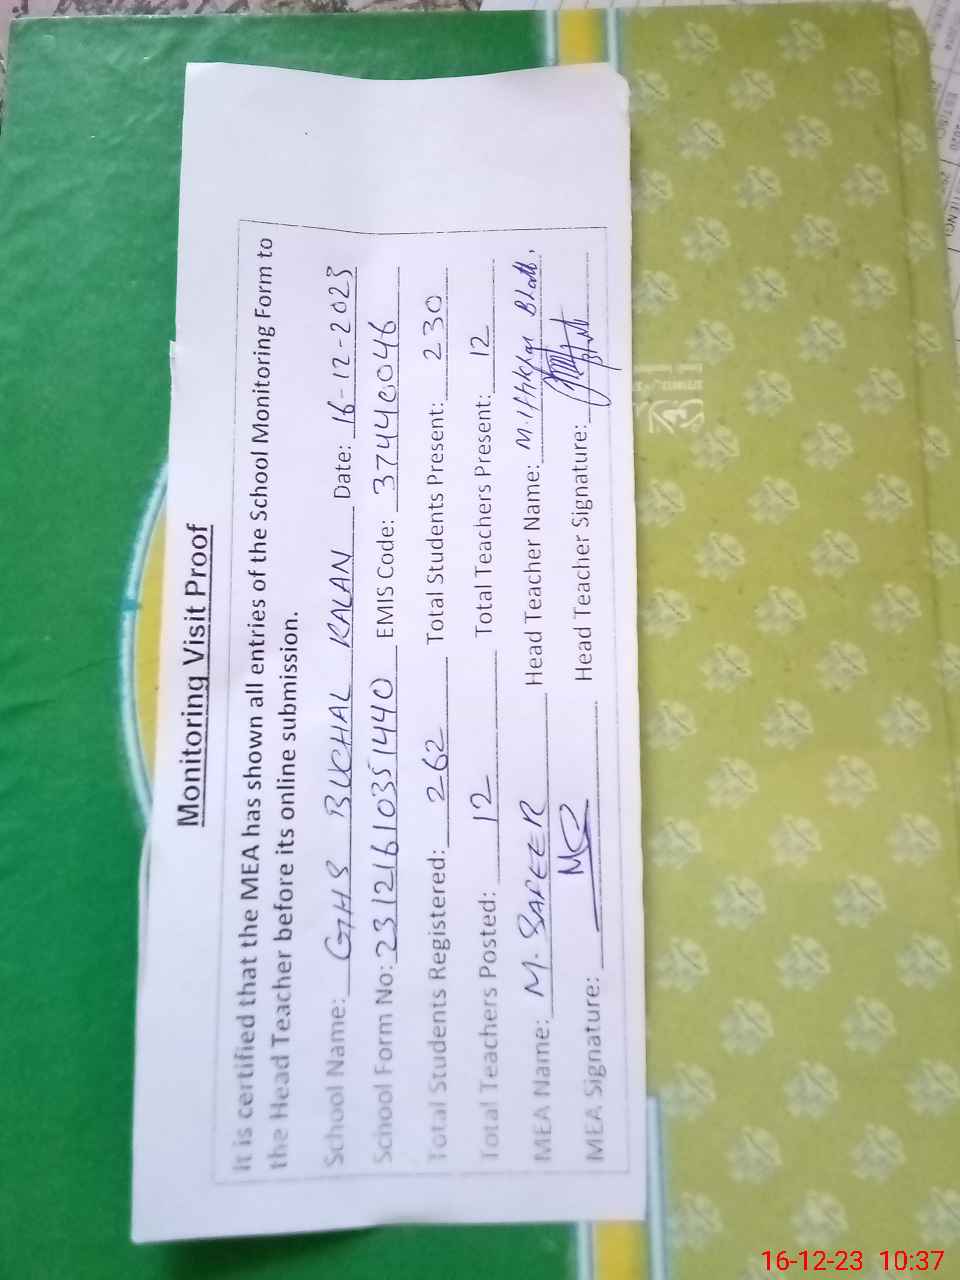 Monitoring Visit Proof
It is certified that the MEA has shown all entries of the School Monitoring Form to
the Head Teacher before its online submission.
School Name: GHS BUCHAL KALAN Date: 16-12-2023
School Form No: 23121610351440 EMIS Code: 37440046
Total Students Registered: 262 Total Students Present: 230
Total Teachers Posted: 12 Total Teachers Present: 12
MEA Name: M. SAFEER Head Teacher Name: M. Iftikhar Bhatti
MEA Signature: Head Teacher Signature:
16-12-23 10:37